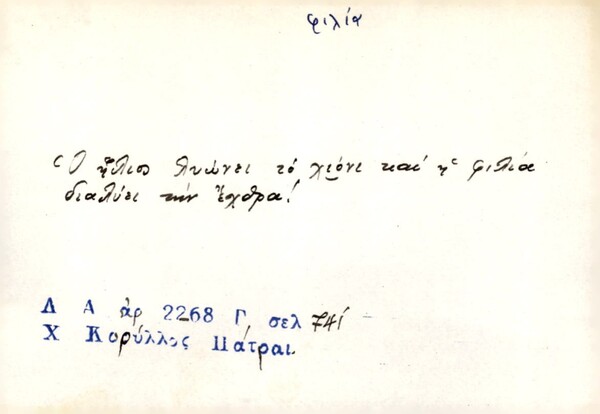 φιλία
Ὁ ἥλιος λυώνει τό χιόνι καί ἡ φιλία
διαλύει τήν ἔχθρα!
Λ Α ἀρ 2268 Γ, σελ 741
Χ Κορύλλος Πάτραι